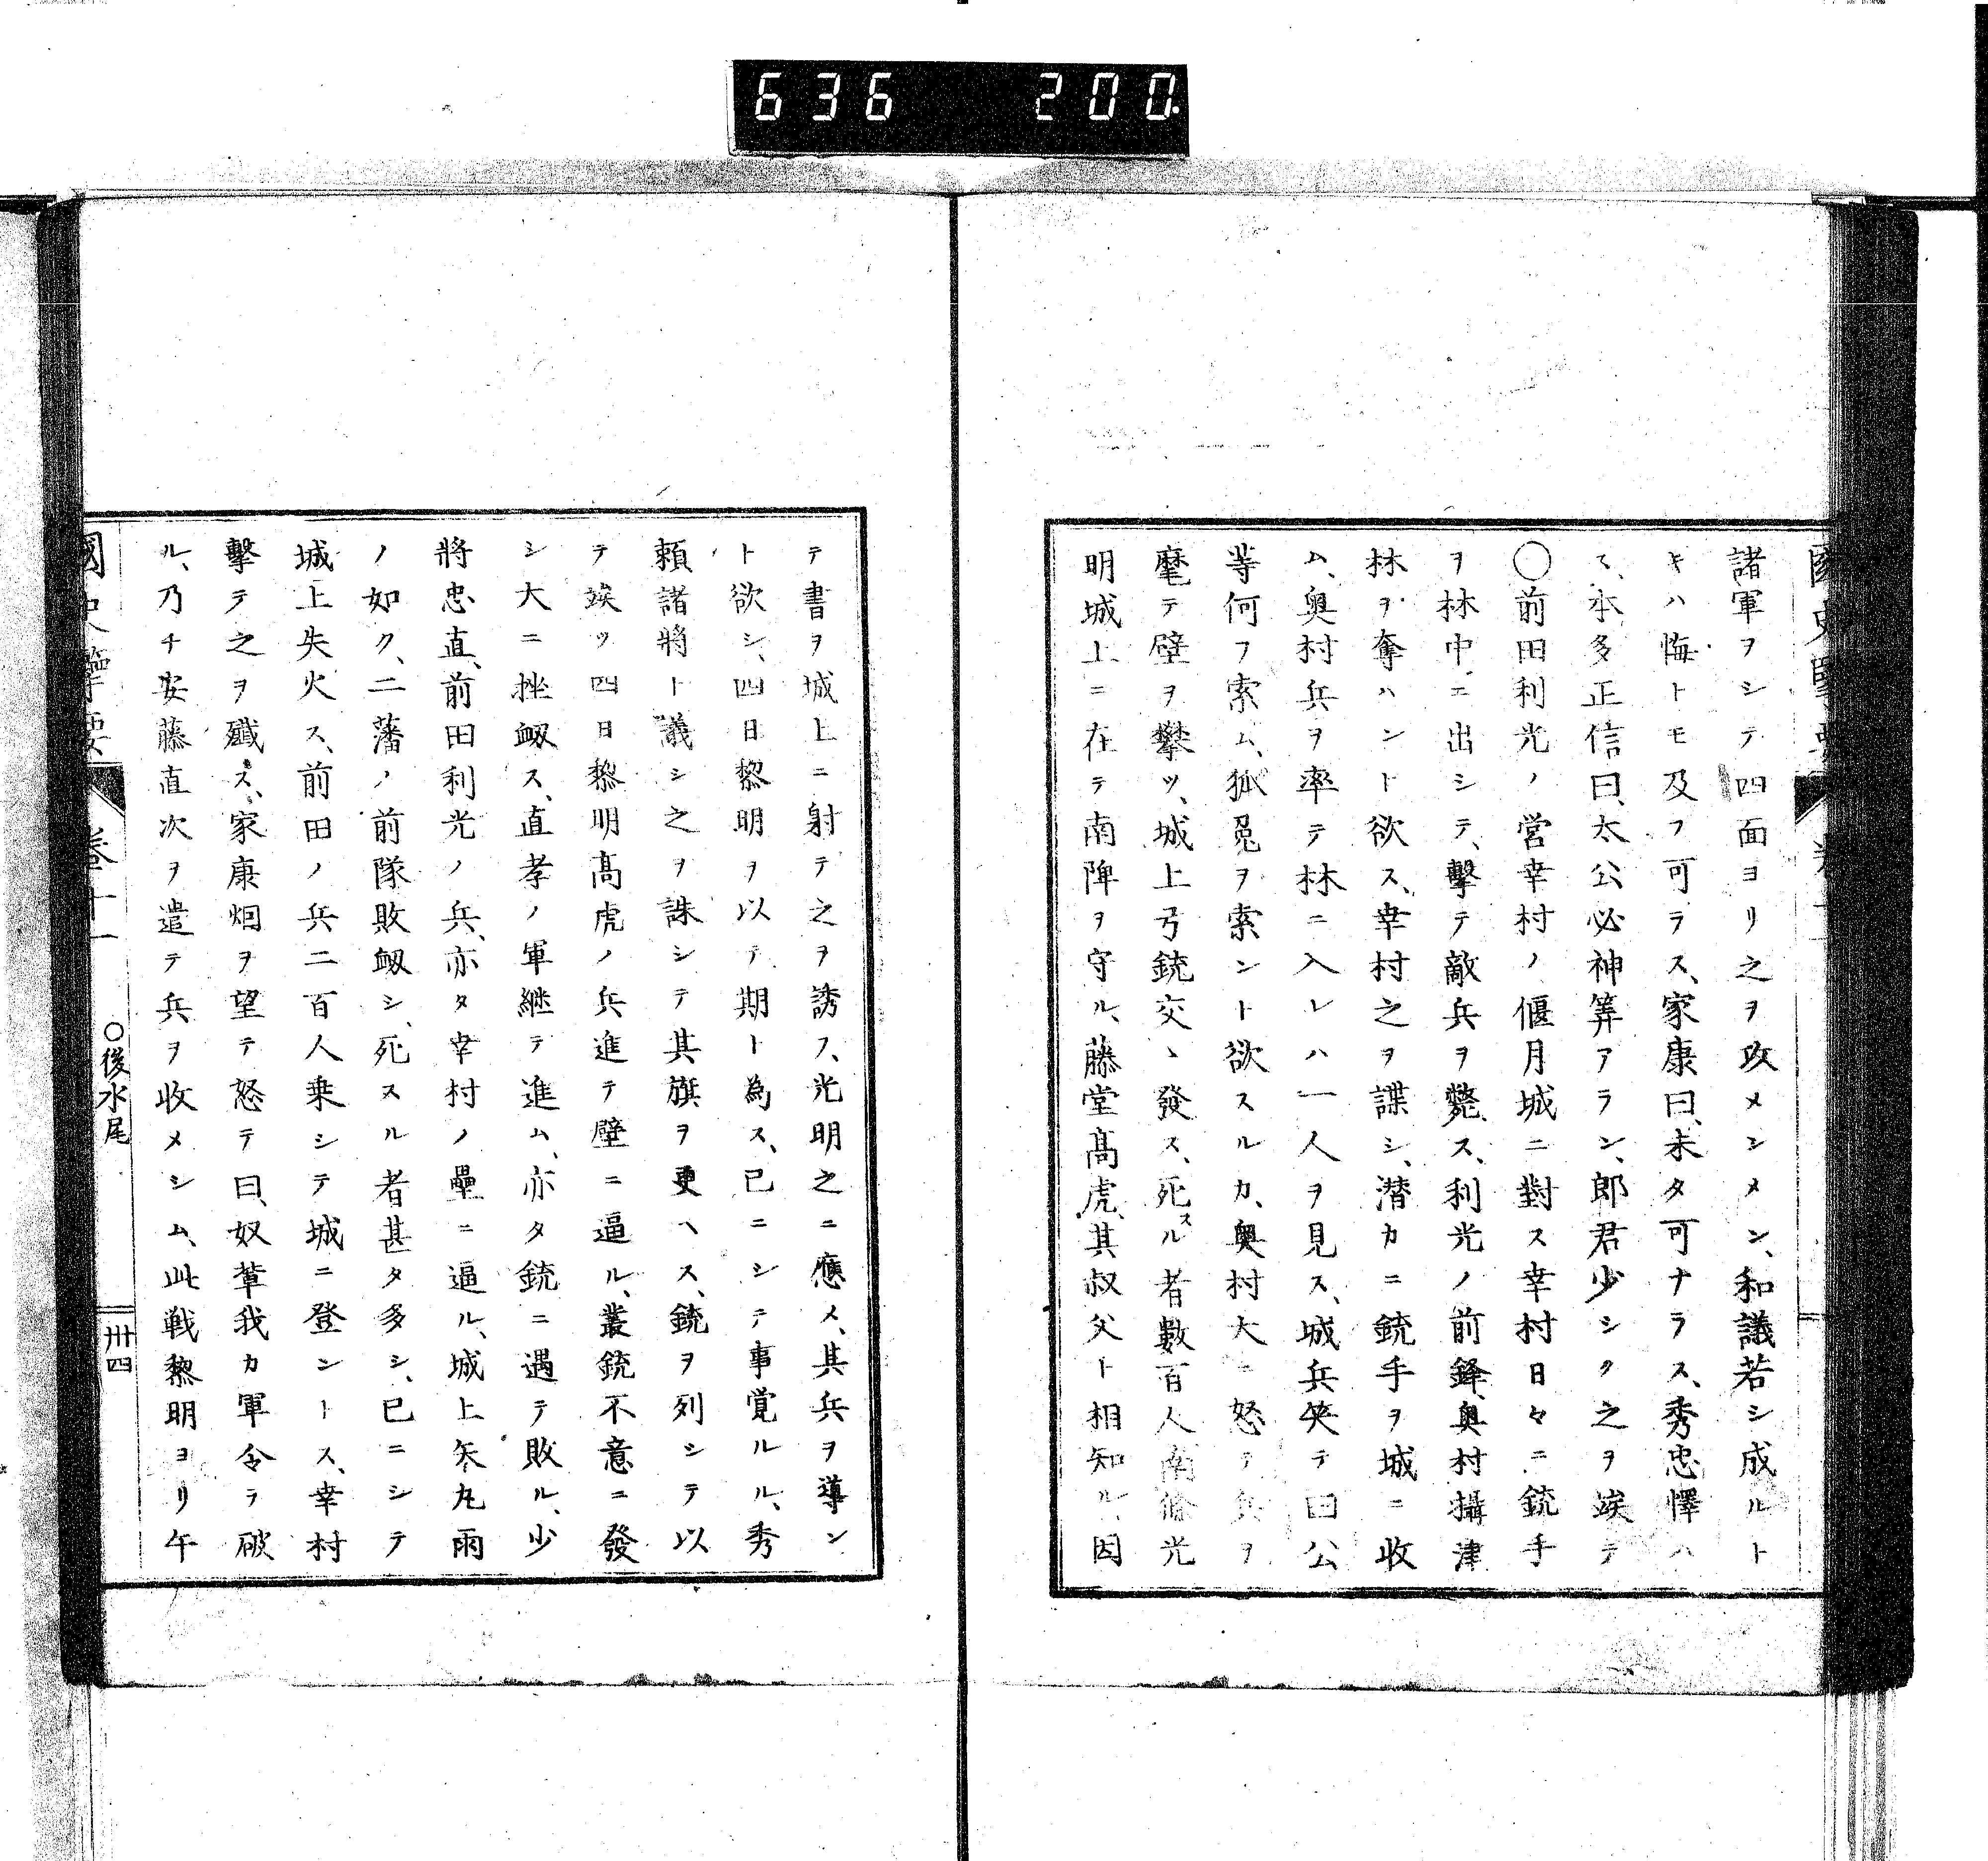 636 200.
諸軍ヲシテ四面ヨリ之ヲ攻メシメン、和議若シ成ルト
キハ悔トモ及フ可ラス、家康曰、未タ可ナラス、秀忠懌ハ
ス、本多正信曰、太公必神筭アラン、郎君少シク之ヲ竢テ
〇前田利光ノ営幸村ノ偃月城ニ對ス幸村日々ニ銃手
ヲ林中ニ出シテ、擊テ敵兵ヲ斃ス、利光ノ前鋒、奥村攝津
林ヲ奪ハント欲ス、幸村之ヲ諜シ、潜カニ銃手ヲ城ニ收
ム、奥村兵ヲ率テ林ニ入レハ一人ヲ見ス、城兵笑テ曰公
等何フ索ム、狐兎ヲ索ント欲スルカ、奥村大ニ怒テ兵ヲ
麾テ壁ヲ攀ツ、城上弓銃交ヽ發ス、死スル者數百人南條光
明城上ニ在テ南陴ヲ守ル、藤堂髙虎、其叔父ト相知ル、因
テ書ヲ城上ニ射テ之ヲ誘フ、光明之ニ應メ、其兵ヲ導ン
ト欲シ、四日黎明ヲ以テ期ト為ス、已ニシテ事覚ルル、秀
頼諸將ト議シ之ヲ誅シテ其旗ヲ更ヘス、銃ヲ列シテ以
テ竢ツ四日黎明髙虎ノ兵進テ壁ニ逼ル、叢銃不意ニ發
シ大ニ挫衂ス、直孝ノ軍継テ進ム、亦タ銃ニ遇テ敗ル、少
將忠直、前田利光ノ兵、亦タ幸村ノ壘ニ逼ル、城上矢丸雨
ノ如ク、二藩ノ前隊敗衂シ、死スル者甚タ多シ、已ニシテ
城上失火ス、前田ノ兵二百人乗シテ城ニ登ントス、幸村
擊テ之ヲ殲ス、家康烟ヲ望テ怒テ曰、奴輩我カ軍令ヲ破
ル、乃チ安藤直次ヲ遣テ兵ヲ收メシム、此戦黎明ヨリ午
國史擥要 卷十一 〇後水尾 卅四